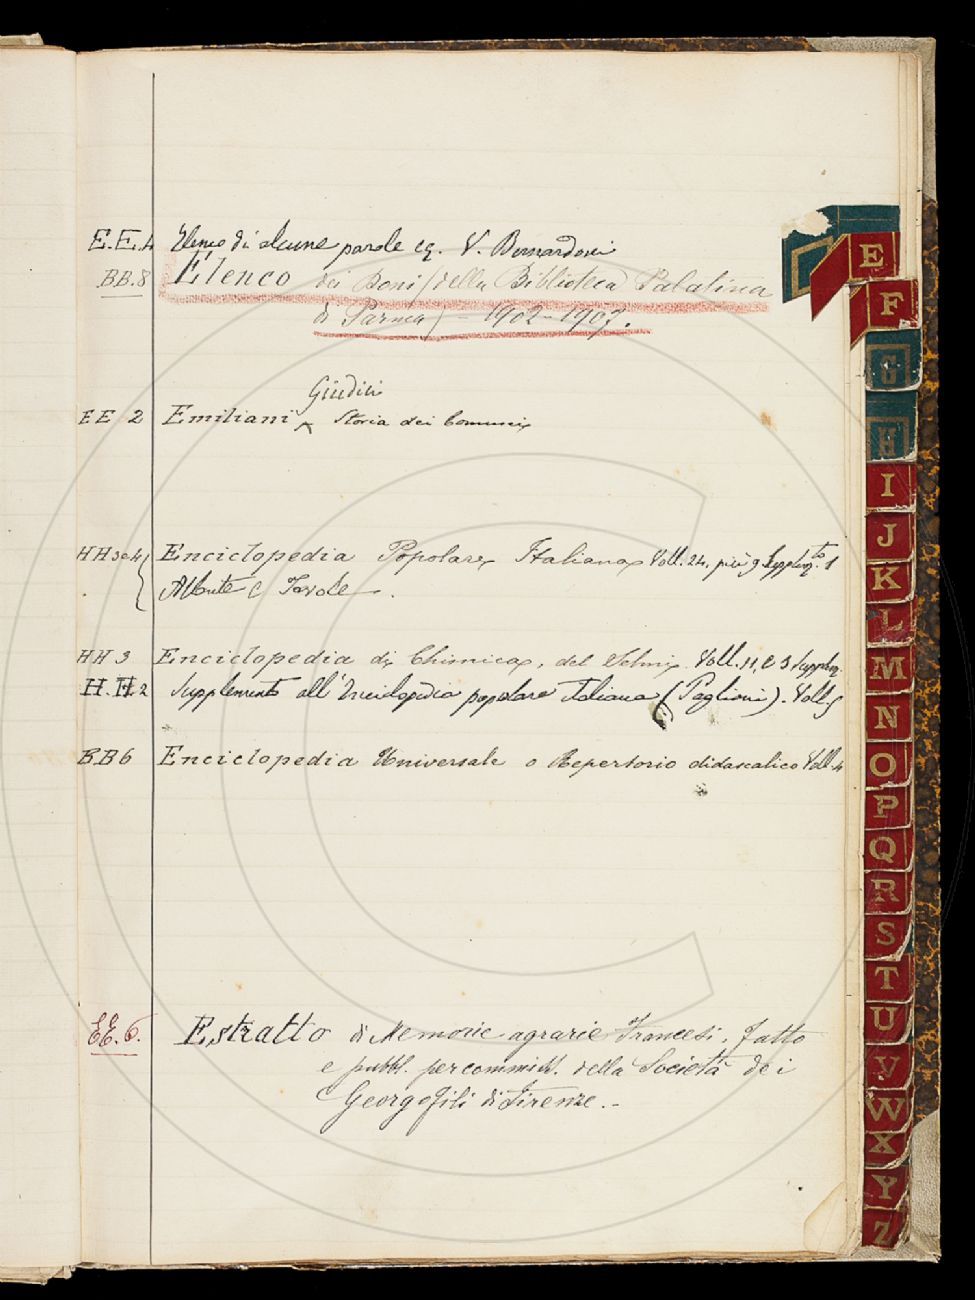 E.E.4 Elenco di alcune parole &. V. Bernardoni
BB.8 Elenco dei Doni (della Biblioteca Palatina
di Parma) - 1902-1907.
Giudici
EE 2 Emiliani ^ Storia dei Comuni
HH 3e4 Enciclopedia Popolare Italiana Voll. 24. più 9 Supplem.to 1
Atlante e Tavole.
HH 3 Enciclopedia di Chimica, del Selmi Voll. 11, e 3 Supplem.
H.H.2 Supplemento all'Enciclopedia popolare italiana (Paglioni). Voll. 5
BB6 Enciclopedia Universale o Repertorio didascalico Voll. 4
EE. 6. Estratto di Memorie agrarie Francesi, fatto
e pubbl. per commiss. della Società dei
Georgofili di Firenze.-
E
F
G
H
I
J
K
L
M
N
O
P
Q
R
S
T
U
V
W
X
Y
Z
C